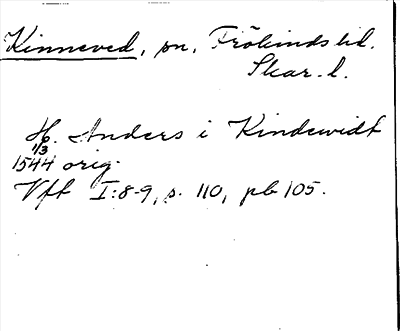 Kinneved, sn, Frökinds hd.
Skar. l.
H. Anders i Kindewidt
1/3
1544 orig.
Vft I:8-9, s. 110, pb 105.